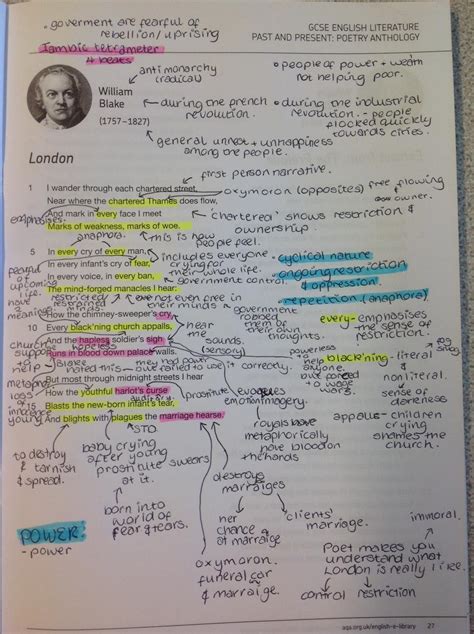 GCSE ENGLISH LITERATURE
PAST AND PRESENT: POETRY ANTHOLOGY
• goverment are fearful of
rebellion / uprising
Iambic tetrameter
4 beats
anti monarchy
(radical)
• people of power + wealth
not helping poor.
William
Blake
(1757–1827)
during the french
revolution.
• during the industrial
revolution - people
flocked quickly
towards cities.
general unrest + unhappiness
among the people.
London
first person narrative.
1 I wander through each chartered street,
oxymoron (opposites) free flowing
owner.
Near where the chartered Thames does flow,
And mark in every face I meet
'chartered' shows restriction &
ownership.
emphasises.
Marks of weakness, marks of woe.
anaphora.
this is how
people feel.
5 In every cry of every man,
includes everyone
In every infant's cry of fear,
crying for
their whole life.
In every voice, in every ban,
government control
The mind-forged manacles I hear:
cyclical nature
ongoing restriction
& oppression.
repetition (anaphora)
fearful
of
upcoming
life.
restricted /
restrained
not even free in
their minds
government
robbed
them of
their own
thoughts.
How the chimney-sweeper's cry
10 Every black'ning church appalls,
hear
me
every - emphasises
the sense of
restriction.
And the hapless soldier's sigh
hopeless
sounds
(sensory)
Runs in blood down palace walls.
church
support
to
help
Blake
hated this
had power
to use it correctly.
powerless
to help
anyone
black'ning - literal
&
nonliteral.
sense of
darkness
But most through midnight streets I hear
How the youthful harlot's curse
auditory
prostitute
evokes
emotion/imagery.
15 Blasts the new-born infant's tear,
And blights with plagues the marriage hearse.
loss of
innocence
young
STD
royals have
metaphorically
have blood on
the hands
appals - children
crying
shames the
church.
to destroy
& tarnish
& spread.
baby crying
after young
prostitute swears
at it.
destroys
marraiges
born into
world of
fear & tears.
her
chance
at
marraige
clients'
marriage.
immoral.
POWER:
- power
oxymoron.
funeral car
& marraige.
Poet makes you
understand what
London is really like.
control
restriction
aqa.org.uk/english-e-library 27